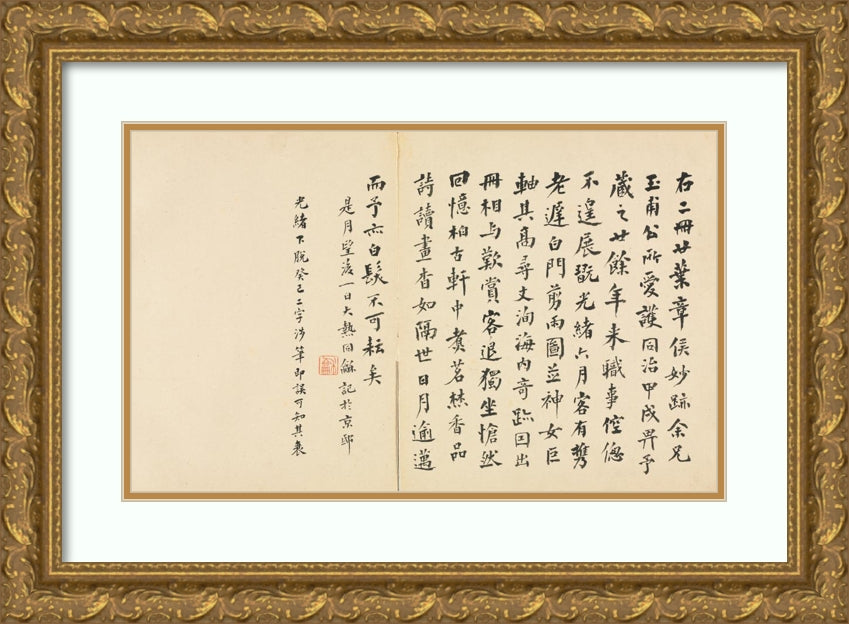 右二冊廿葉章侯妙跡余兄
玉甫公所愛護同治甲戌畀予
藏之廿餘年来職事倥傯
不遑展翫光緒六月客有攜
老遲白門剪雨圖並神女巨
軸其高尋丈洵海内奇跡因出
冊相与歎賞客退獨坐愴然
回憶柏古軒中煑茗爇香品
詩讀畫杳如隔世日月逾邁
而予亦白髮不可耘矣
是月望後一日大熱同龢記於京邸
光緒下脫癸巳二字涉筆即誤可知其衰